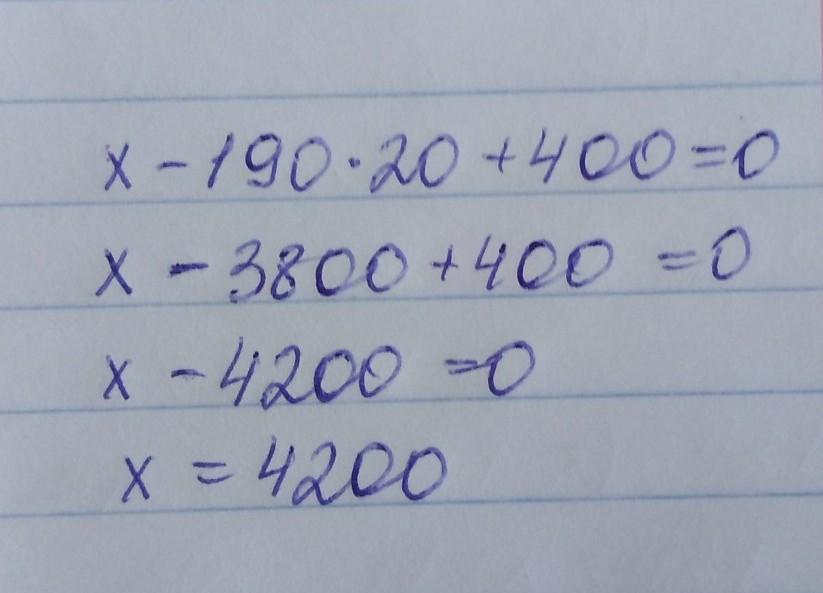 x - 190 · 20 + 400 = 0
x - 3800 + 400 = 0
x - 4200 = 0
x = 4200